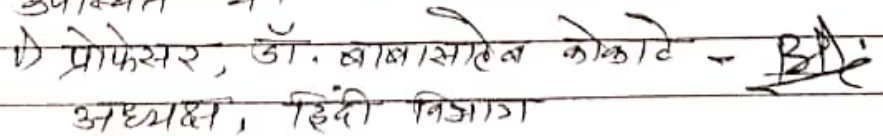 उपस्थित
1) प्रोफेसर, डॉ. बाबासाहेब कोकाटे -
अध्यक्ष, हिंदी विभाग